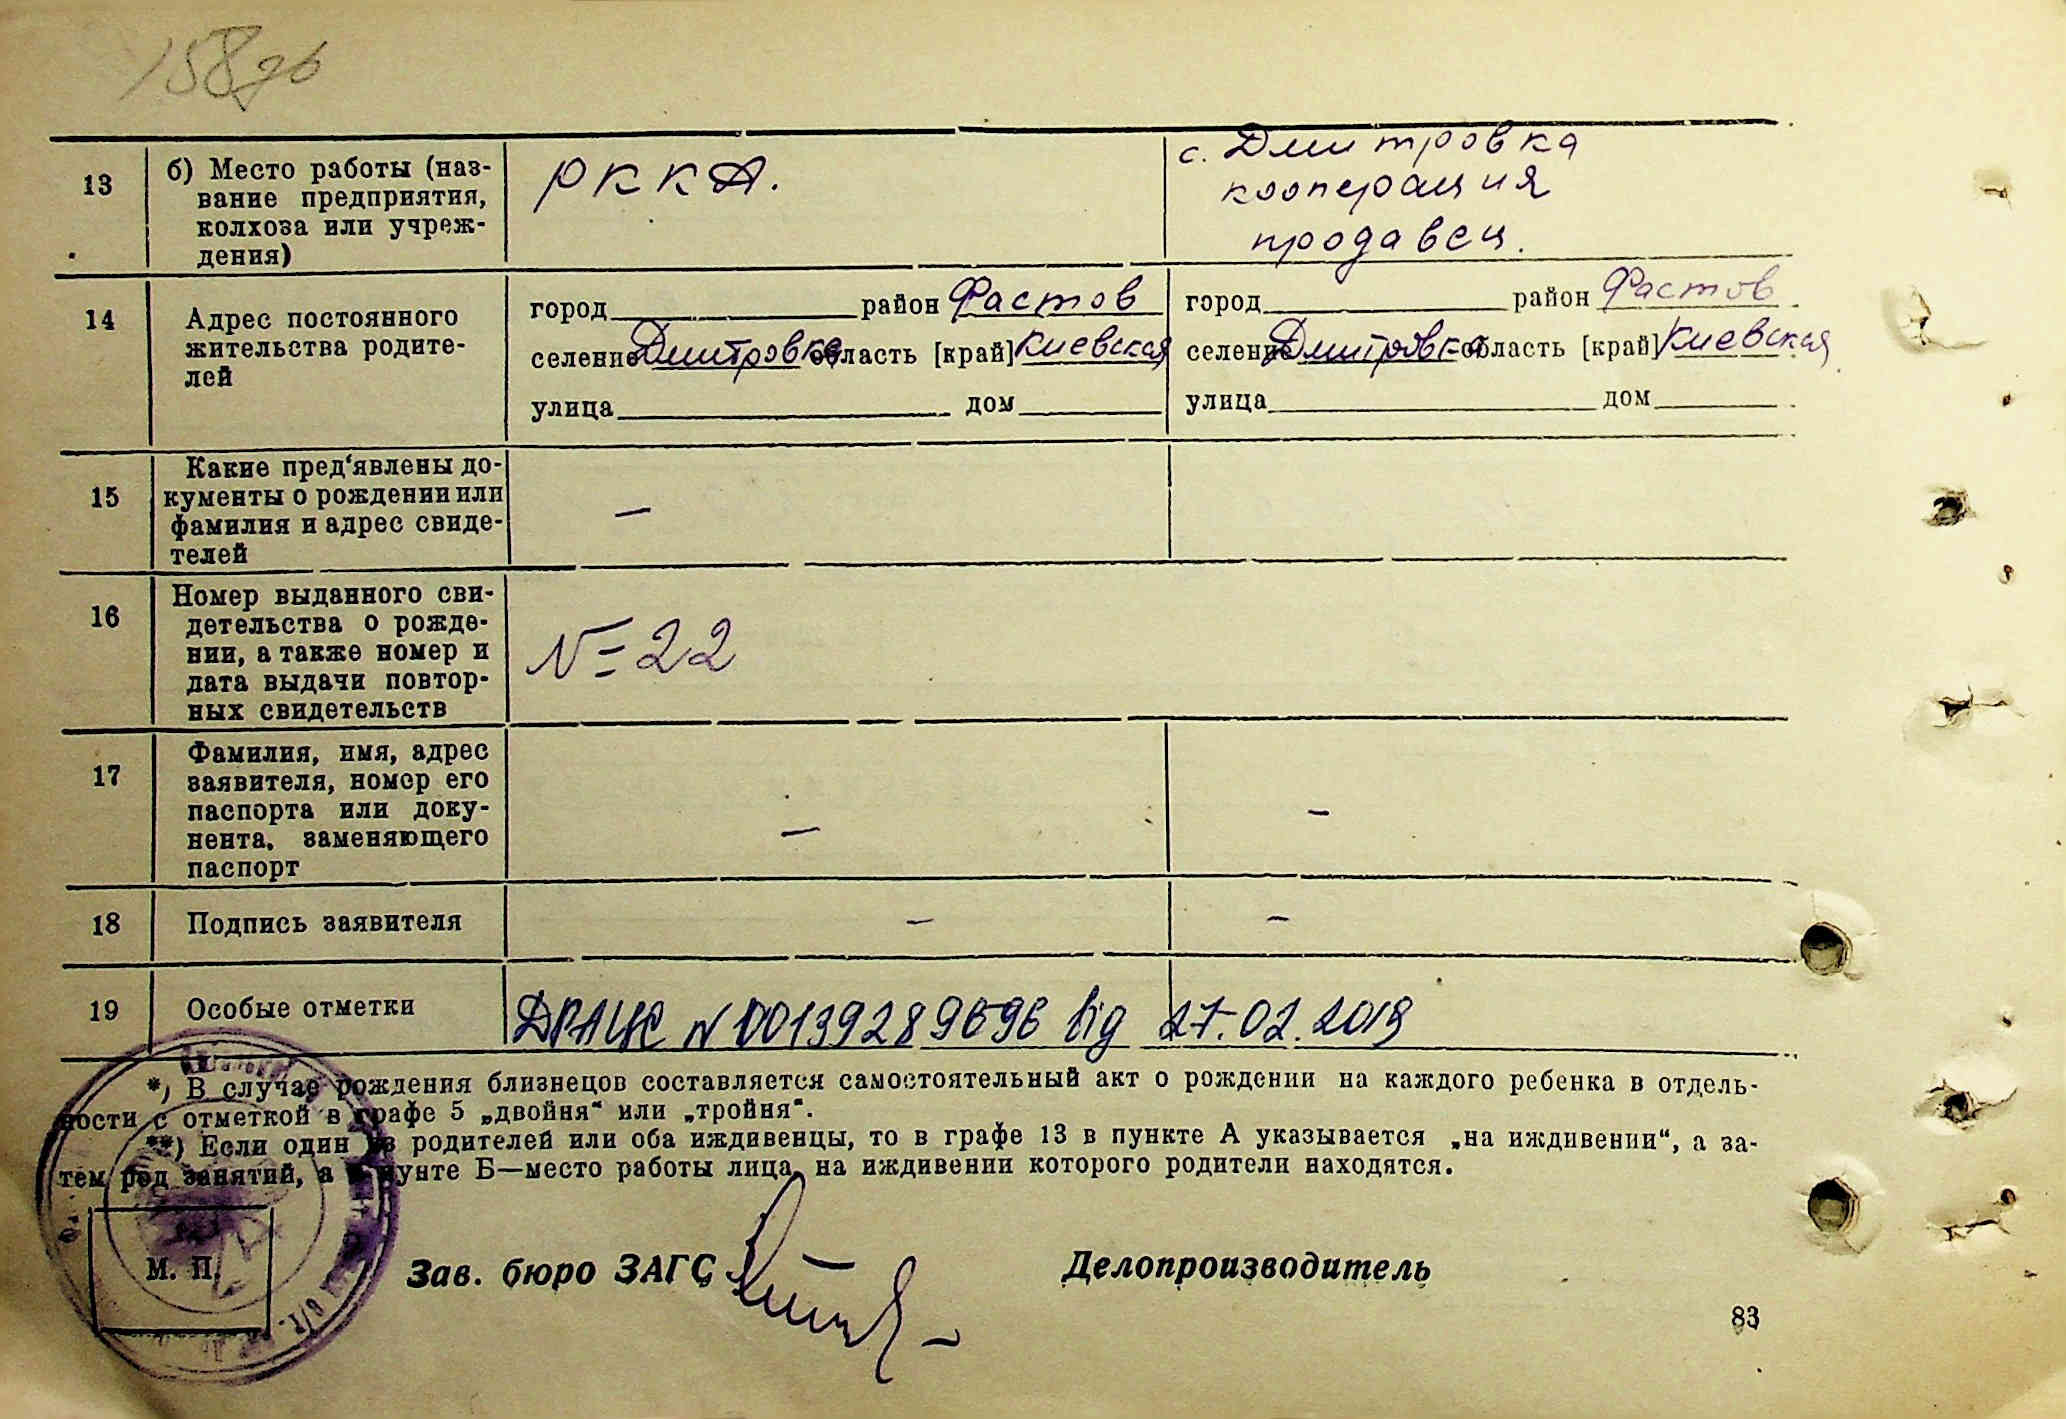 158зв
13
б) Место работы (наз-
вание предприятия,
колхоза или учреж-
дения)
РККА.
с. Дмитровка
кооперация
продавец.
14
Адрес постоянного
жительства родите-
лей
город район Фастов
селение Дмитровка область [край] Киевская
улица дом
город район Фастов
селение Дмитровка область [край] Киевская
улица дом
15
Какие пред‘явлены до-
кументы о рождении или
фамилия и адрес свиде-
телей
—
16
Номер выданного сви-
детельства о рожде-
нии, а также номер и
дата выдачи повтор-
ных свидетельств
№ 22
17
Фамилия, имя, адрес
заявителя, номер его
паспорта или доку-
нента, заменяющего
паспорт
—
—
18
Подпись заявителя
—
—
19
Особые отметки
ДРАЦС №00139289696 від 27.02.2019
*) В случае рождения близнецов составляется самостоятельный акт о рождении на каждого ребенка в отдель-
ности с отметкой в графе 5 „двойня“ или „тройня“.
**) Если один из родителей или оба иждивенцы, то в графе 13 в пункте А указывается „на иждивении“, а за-
тем род занятий, а в пунте Б—место работы лица, на иждивении которого родители находятся.
М. П.
Зав. бюро ЗАГС
Делопроизводитель
83